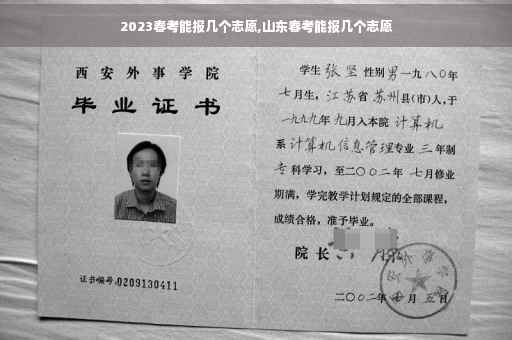 2023春考能报几个志愿,山东春考能报几个志愿
西安外事学院
毕业证书
证书编号:0209130411
学生 张坚 性别 男 一九八〇年
七月生, 江苏省 苏州县(市)人,于
一九九九年 九月入本院 计算机
系 计算机信息管理专业 三 年制
专科学习, 至二〇〇二年 七月修业
期满, 学完教学计划规定的全部课程,
成绩合格, 准予毕业。
院长
二〇〇二年 月 五日